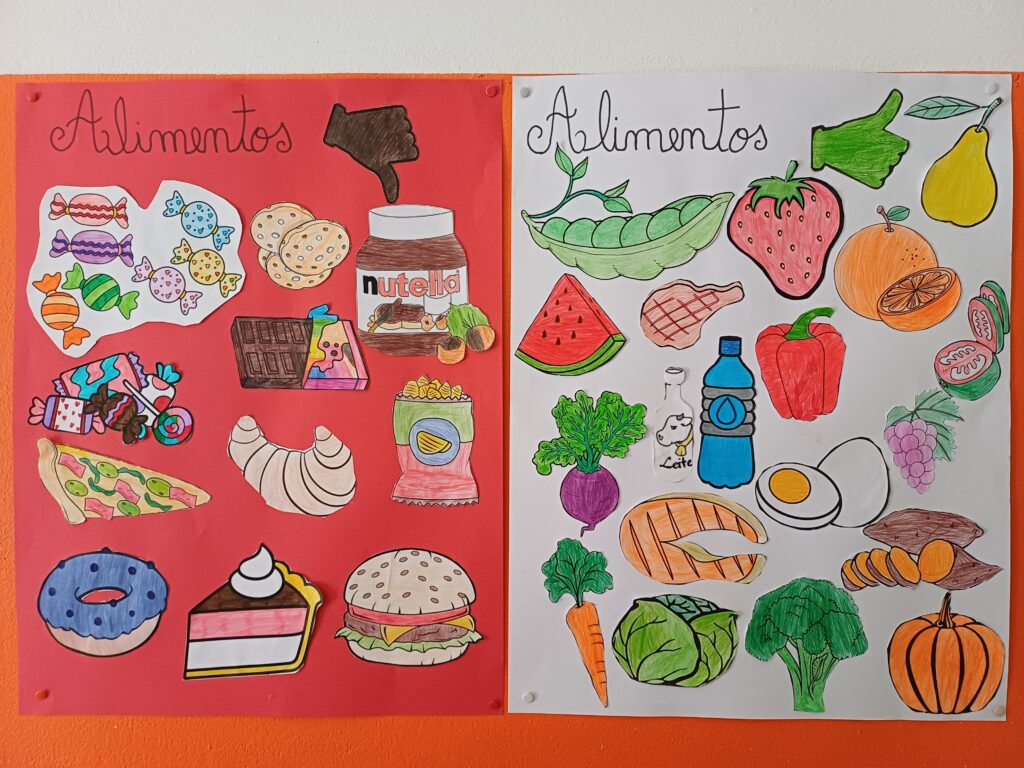 Alimentos
nutella
Alimentos
Leite